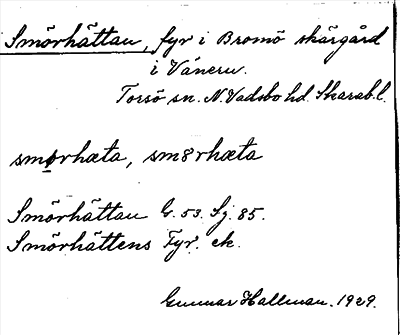 Smörhättan, fyr i Bromö skärgård
i Vänern.
Torsö sn. N. Vadsbo hd. Skarab. l.
smørhæta, sm8rhæta
Smörhättan G. 53. Sj. 85.
Smörhättens Fyr. ek.
Gunnar Hallman. 1929.